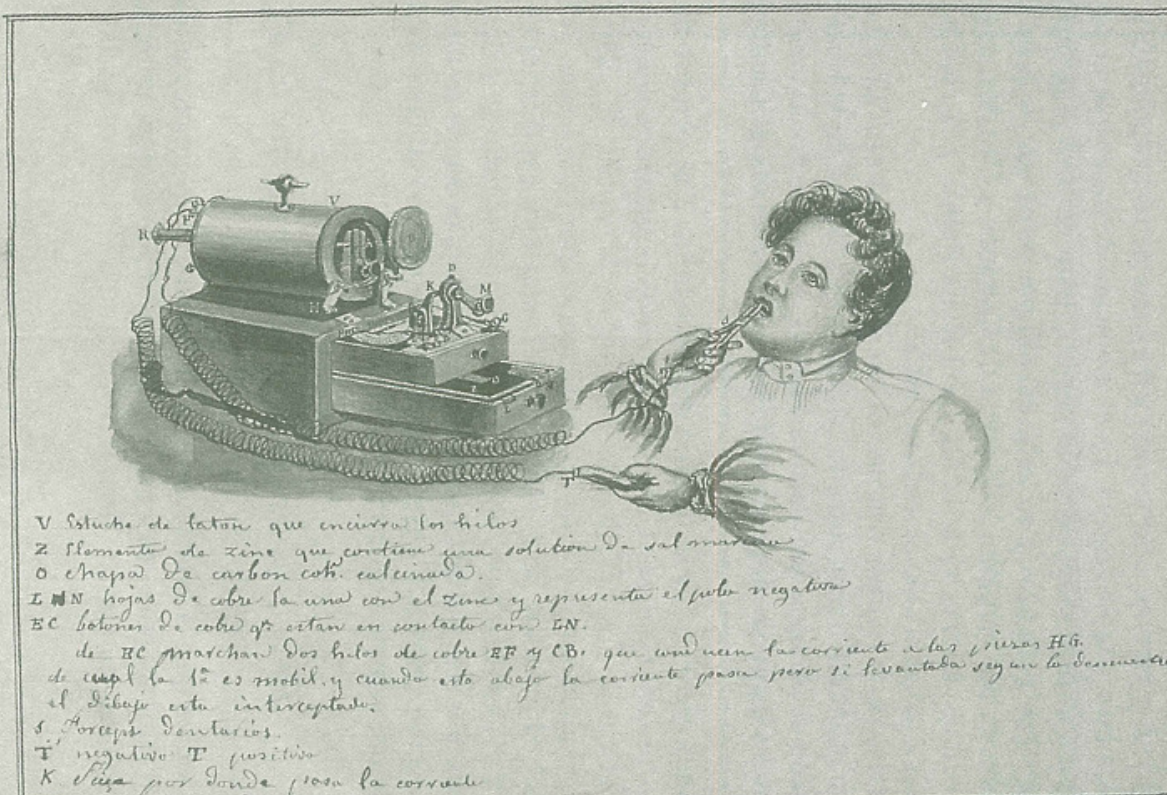 V Estuche de laton que encierra los hilos
Z Elemento de zinc que contiene una solution de sal marina
O chapa de carbon calcinada.
L N hojas de cobre la una con el zinc y representa el polo negativo
EC botones de cobre qe. estan en contacto con LN.
de EC marchan dos hilos de cobre EF y CB. que conducen la corriente a las piezas HG.
de la 1a. es mobil. y cuando esta abajo la corriente pasa pero si levantada segun lo demuestra
el dibujo esta interceptado.
s Forceps dentarios.
T negativo T positivo
K por donde pasa la corriente
R
V
H
K
D
M
G